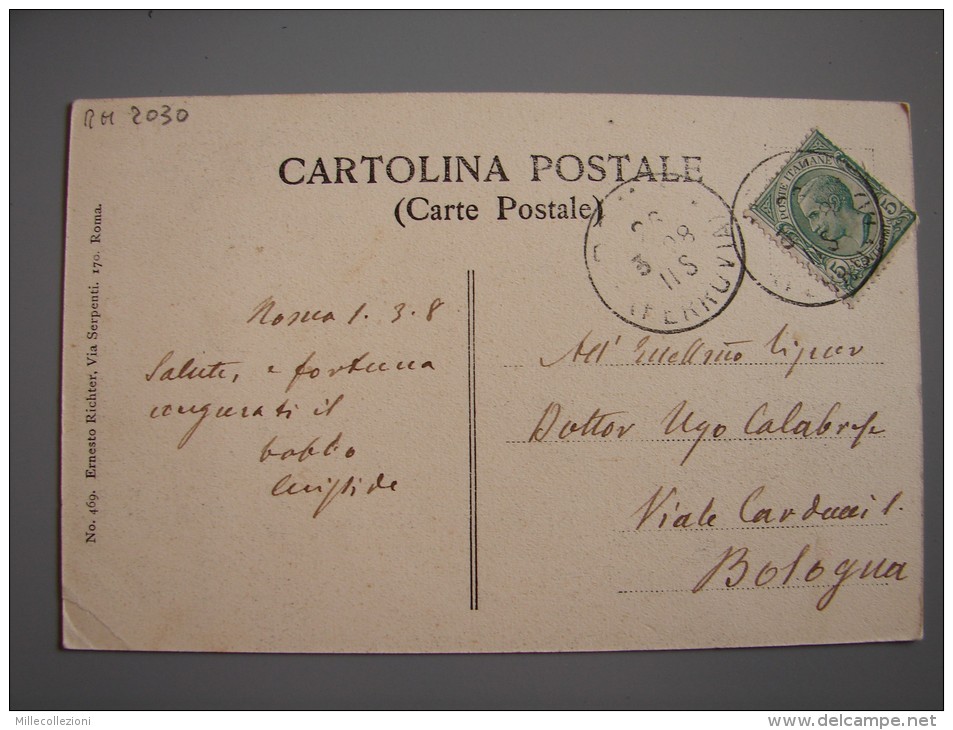 RM 2030
CARTOLINA POSTALE
(Carte Postale)
No. 469. Ernesto Richter, Via Serpenti. 170. Roma.
POSTE ITALIANE
3 08
11 S
Roma 1. 3. 8
Salute, e fortuna
auguranti il
babbo
All' Ill
Dottor Ugo Calabrese
Viale Carducci 1.
Bologna
Millecollezioni
www.delcampe.net